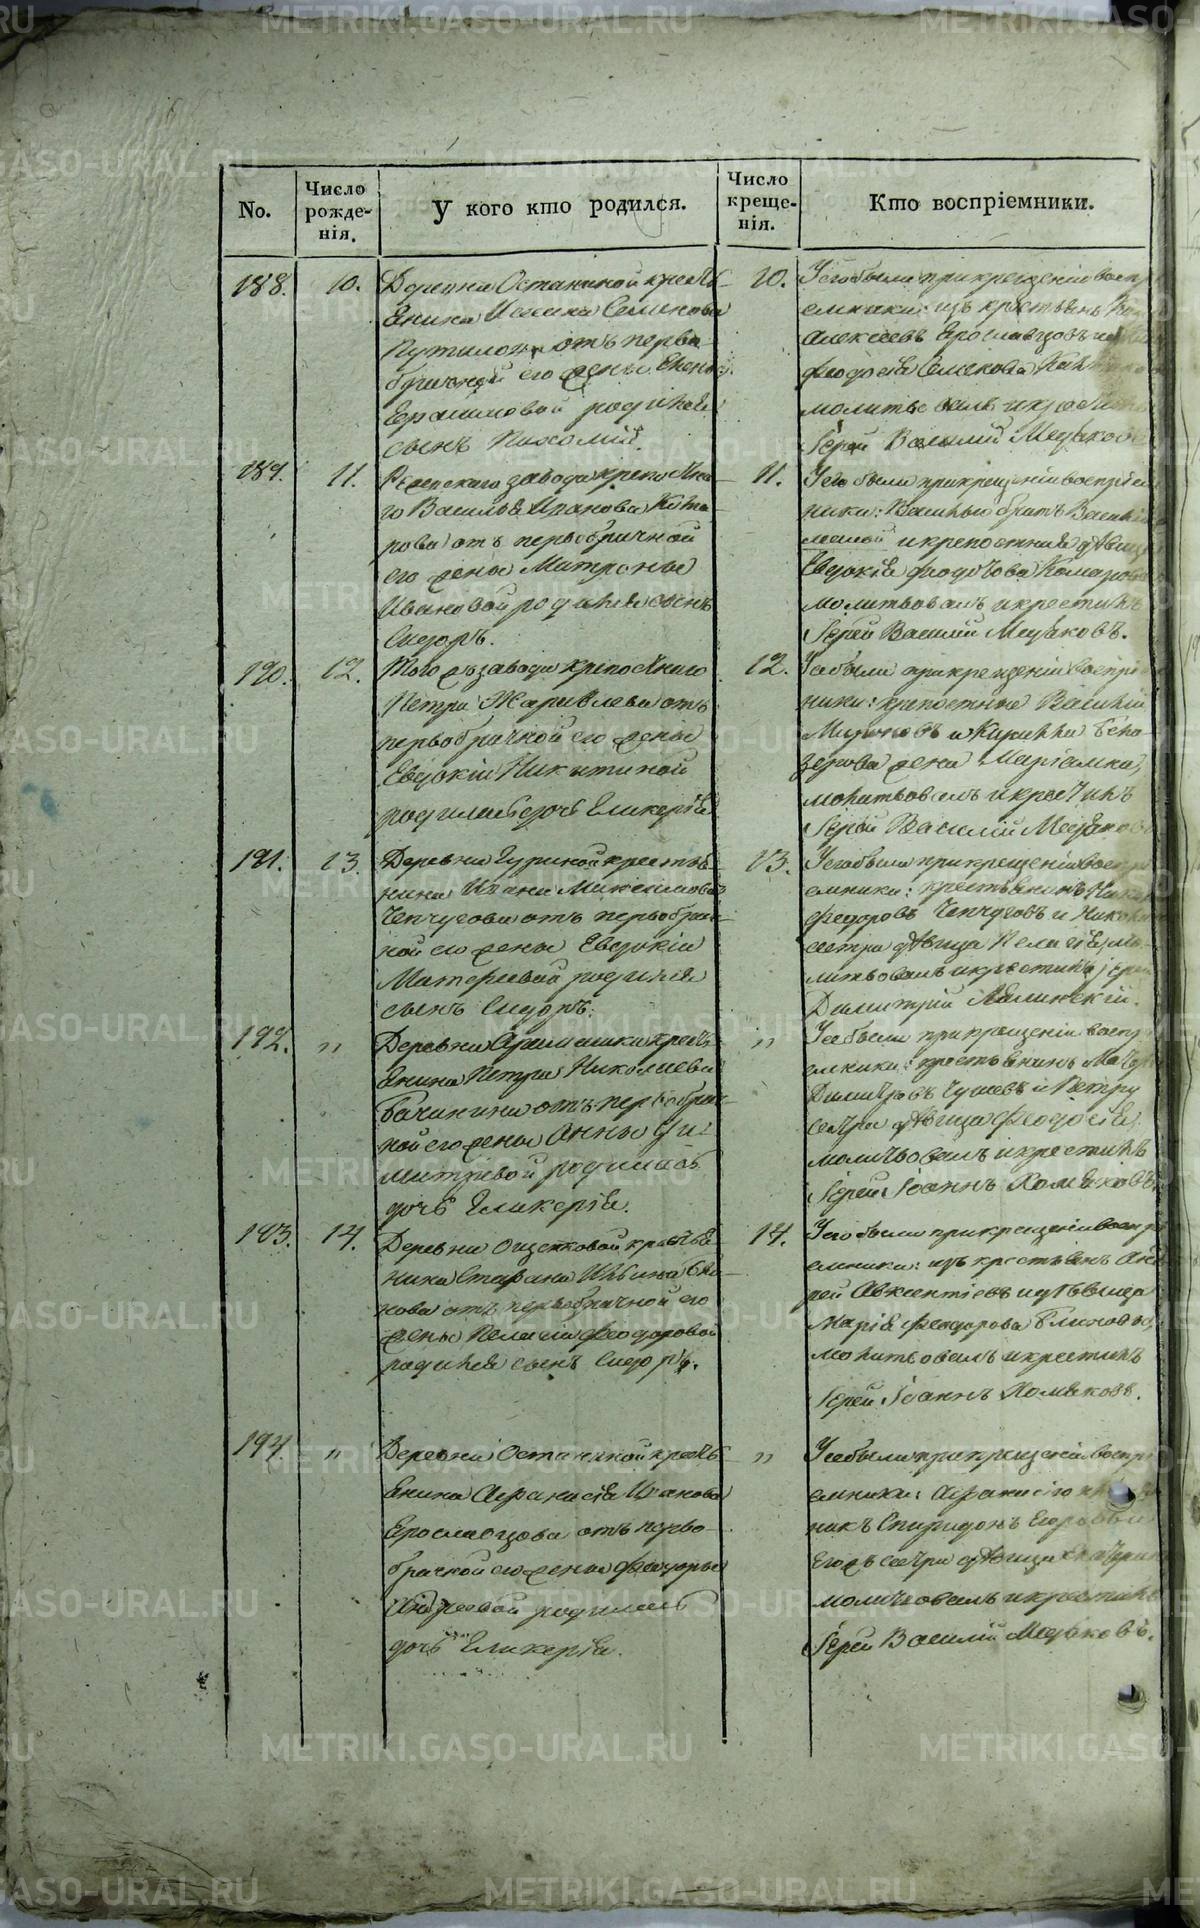 No.
Число рожде-нія.
У кого кто родился.
Число креще-нія.
Кто воспріемники.
188.
10.
Деревни Останиной кресть
янина Исаака Семенова
Путилова отъ перво
брачной его жены Елены
Герасимовой родился
сынъ Пахомій.
10.
У его были при крещеніи воспрі
емники: изъ крестьянъ
Алексеевъ Ерославцовъ и
Феодосія Семенова
молитвовалъ и крестилъ
Іерей Василій Медяковъ
189.
11.
Режевскаго завода крепостна
го Василья Иванова Кома
рова отъ первобрачной
его жены Матроны
Ивановой родился сынъ
Сидоръ.
11.
У его были при крещеніи воспріем
ники: Василья братъ Василій
малой и крепостная девица
Евдокія Феодотова Комарова
молитвовалъ и крестилъ
Іерей Василій Медяковъ.
190.
12.
Того жъ завода крепостнаго
Петра Жаравлева отъ
первобрачной его жены
Евдокіи Никитиной
родилась дочь Гликерія
12.
У ея были при крещеніи воспріем
ники: крепостные Василій
Мироновъ и Кирилла Бело
зерова жена Маріамна,
молитвовалъ и крестилъ
Іерей Василій Медяковъ
191.
13.
Деревни Гуриной крестья
нина Ивана Максимова
Чепчугова отъ первобрач
ной его жены Евдокіи
Матвеевой родился
сынъ Сидоръ.
13.
У его были при крещеніи воспрі
емники: крестьянинъ
Федоровъ Чепчуговъ и
сестра девица Пелагея, мо
литвовалъ и крестилъ іерей
Димитрій Ляпинскій.
192.
"
Деревни Арамашки кресть
янина Петра Николаева
Бачинина отъ первобрач
ной его жены Анны Ди
митріевой родилась
дочь Гликерія.
"
У ея были при крещеніи воспрі
емники: крестьянинъ
Димитровъ и Петру
сестра девица Феодосія,
молитвовалъ и крестилъ
Іерей Іоаннъ Хомяковъ
193.
14.
Деревни Ощепковой крестья
нина Стафана Ильина Бли
нова отъ первобрачной его
жены Пелагеи Феодоровой
родился сынъ Сидоръ.
14.
У его были при крещеніи воспрі
емники: изъ крестьянъ Анд
рей Авксентіевъ и девица
Марія Феодорова Блинова,
молитвовалъ и крестилъ
Іерей Іоаннъ Хомяковъ.
194.
"
Деревни Останиной кресть
янина Афанасія Иванова
Ерославцова отъ перво
брачной его жены Феодоры
Андреевой родилась
дочь Гликерія.
"
У ея были при крещеніи воспрі
емники: Афанасію
Спиридонъ Егоровъ и
Егоръ сестра девица Екатерина
молитвовалъ и крестилъ
Іерей Василій Медяковъ.
METRIKI.GASO-URAL.RU